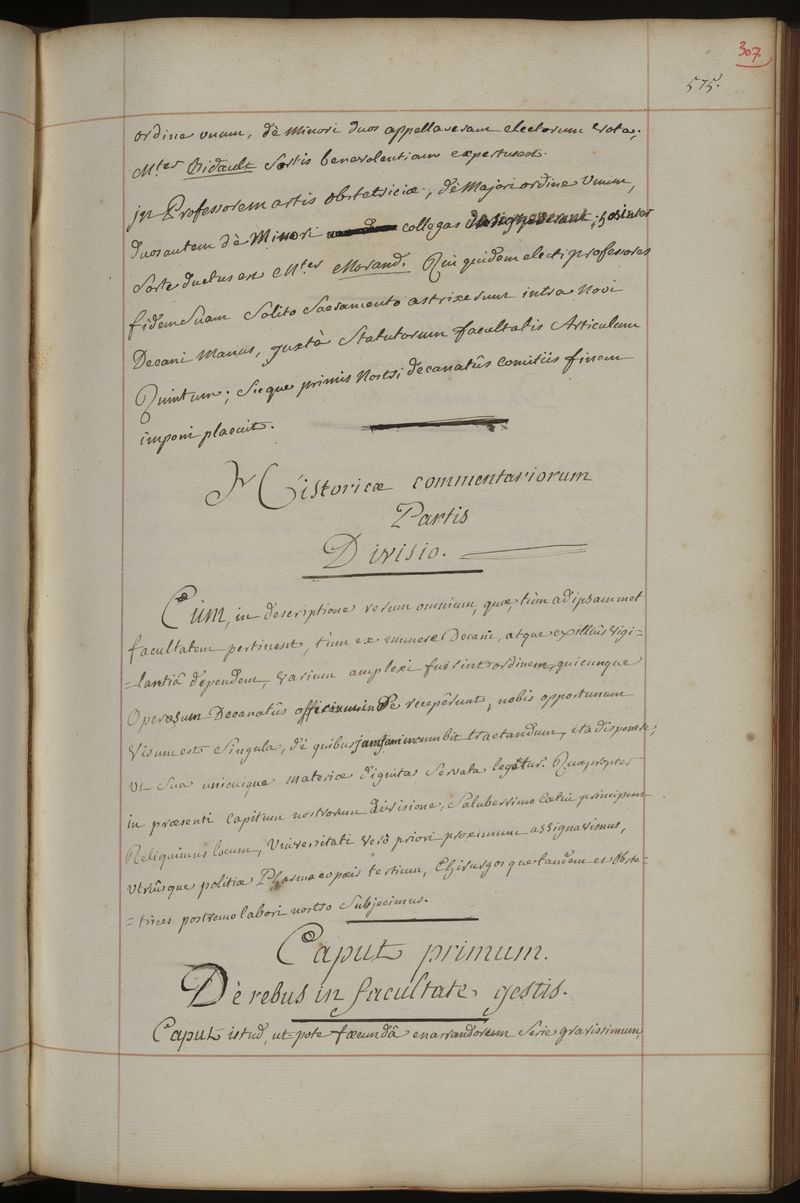 307
575.
ordine unum, dè Minori duos appellaveram electorum vota;
M.ter Bidault Sortis benevolentiam expertus est.
jn Professorem artis obstetriciæ, dè Majori ordine Unum,
duos autem dè Minori collegas designaverant; hos inter
Sorte ductus est M.ter Morand. Qui quidem electi professores
fidem Suam Solito Sacramento astrixerunt intra Novi
Decani Manus, juxtà Statutorum facultatis Articulum
Quintum; Sicque primis Nostri decanatûs comitiis finem
imponi placuit.
Historicæ commentariorum
Partis
Divisio.
Cùm, in descriptione rerum omnium, quæ, tùm ad ipsammet
facultatem pertinent, tùm ex munere Decani, atque ex illiûs vigi=
=lantiâ dependem, varium amplexi fuerint ordinem, quicunque
Operosum Decanatûs officium indè receperunt, nobis opportunum
Visum est Singula, dè quibus jamjam incumbit tractandum, ita disponere,
ut Sua unicuique materiæ dignitas Servata legetur. Quapropter
in præsenti capitum nostrorum divisione, Saluberrimo Cœtui principem
Reliquimus locum, Universitati verò priori proximum assignavimus,
utriûsque politiæ Pharmacopæis tertium, Chirurgos que tandem et Obste=
=trices postremo labori nostro Subjecimus.
Caput primum.
Dè rebus in facultate gestis.
Caput istud, ut pote fœcundâ enarrandorum Serie gravissimum,